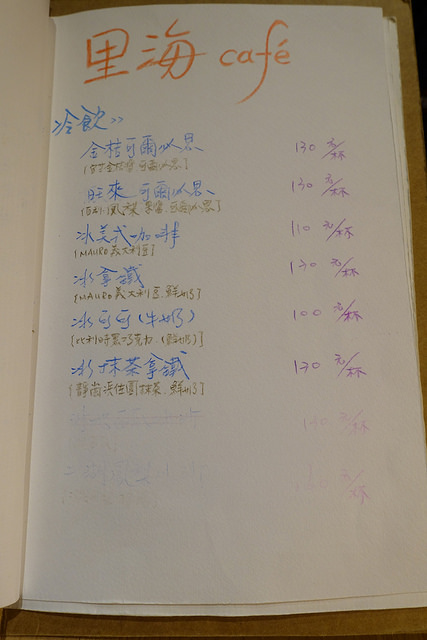 里海 café
冷飲>>
金桔可爾必思 130 元/杯
旺來可爾必思 130 元/杯
(百利.鳳梨果醬.可爾必思)
冰美式咖啡 110 元/杯
(MAURO義大利豆)
冰拿鐵 130 元/杯
(MAURO義大利豆.鮮奶)
冰可可(牛奶) 100 元/杯
(比利時黑巧克力.(鮮奶))
冰抹茶拿鐵 130 元/杯
(靜岡浜佳園抹茶.鮮奶)
元/杯
元/杯